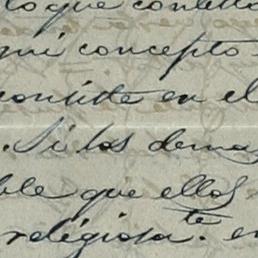 lo que contesta
mi concepto
consiste en el
. Si los demas
ble que ellos
religiosa.te en